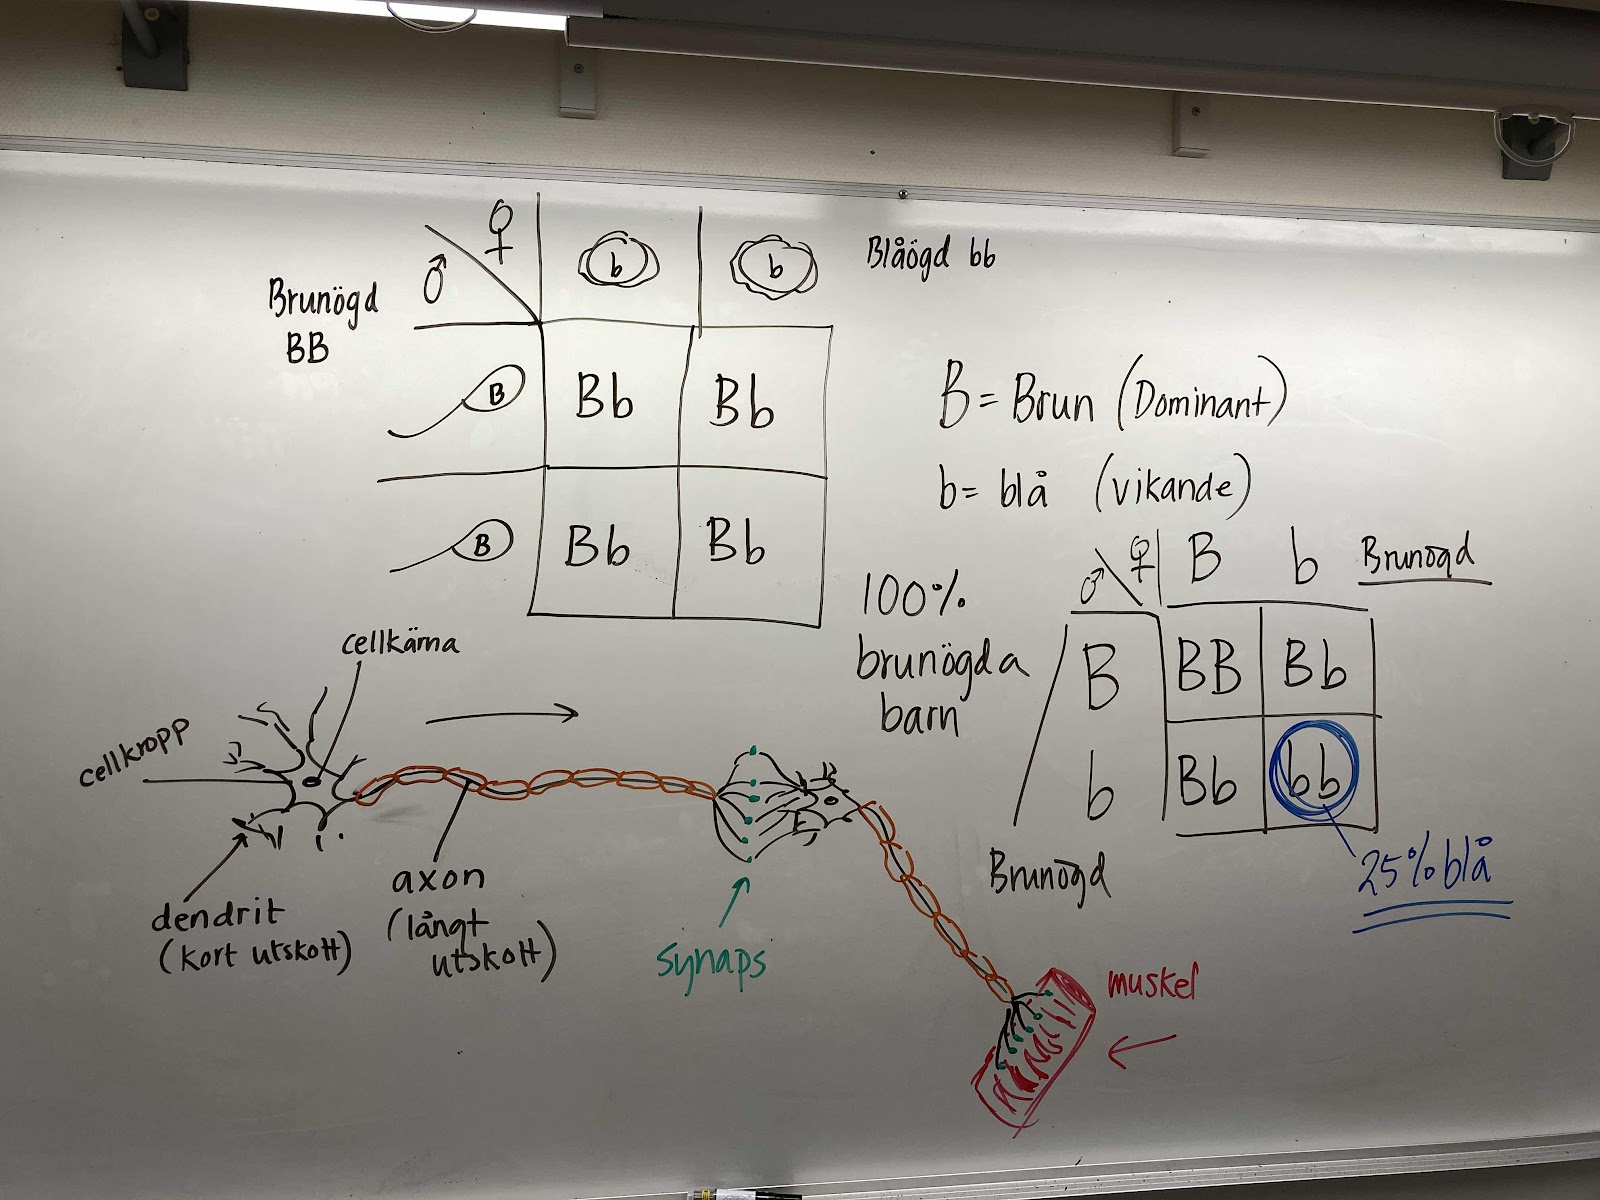 ♂ ♀ b b
Blåögd bb
Brunögd
BB
B Bb Bb
B Bb Bb
B = Brun (Dominant)
b = blå (vikande)
100%
brunögda
barn
♂ ♀ B b Brunögd
B BB Bb
b Bb bb
Brunögd
25% blå
cellkärna
cellkropp
dendrit
(kort utskott)
axon
(långt
utskott)
synaps
muskel